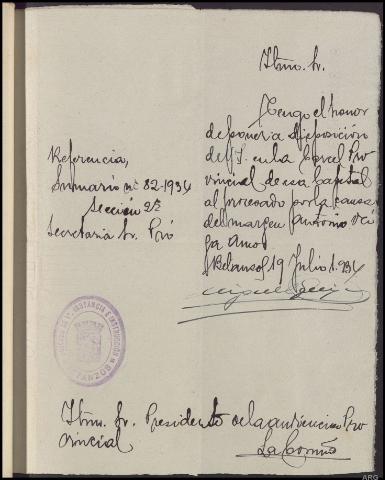 Iltmo. Sr.
Tengo el honor
de poner a disposición
de V.I. en la Carcel Pro
vincial de esa Capital
al procesado por la causa
del margen Antonio Vei
ga Amor
Betanzos 19 Julio 1.934
Referencia,
Sumario nº 82-1934
Sección 2ª
Secretaria Sr. Pró
JUZGADO DE 1ª INSTANCIA E INSTRUCCIÓN
BETANZOS
Iltmo. Sr. Presidente de la audiencia Pro
vincial
La Coruña
ARG